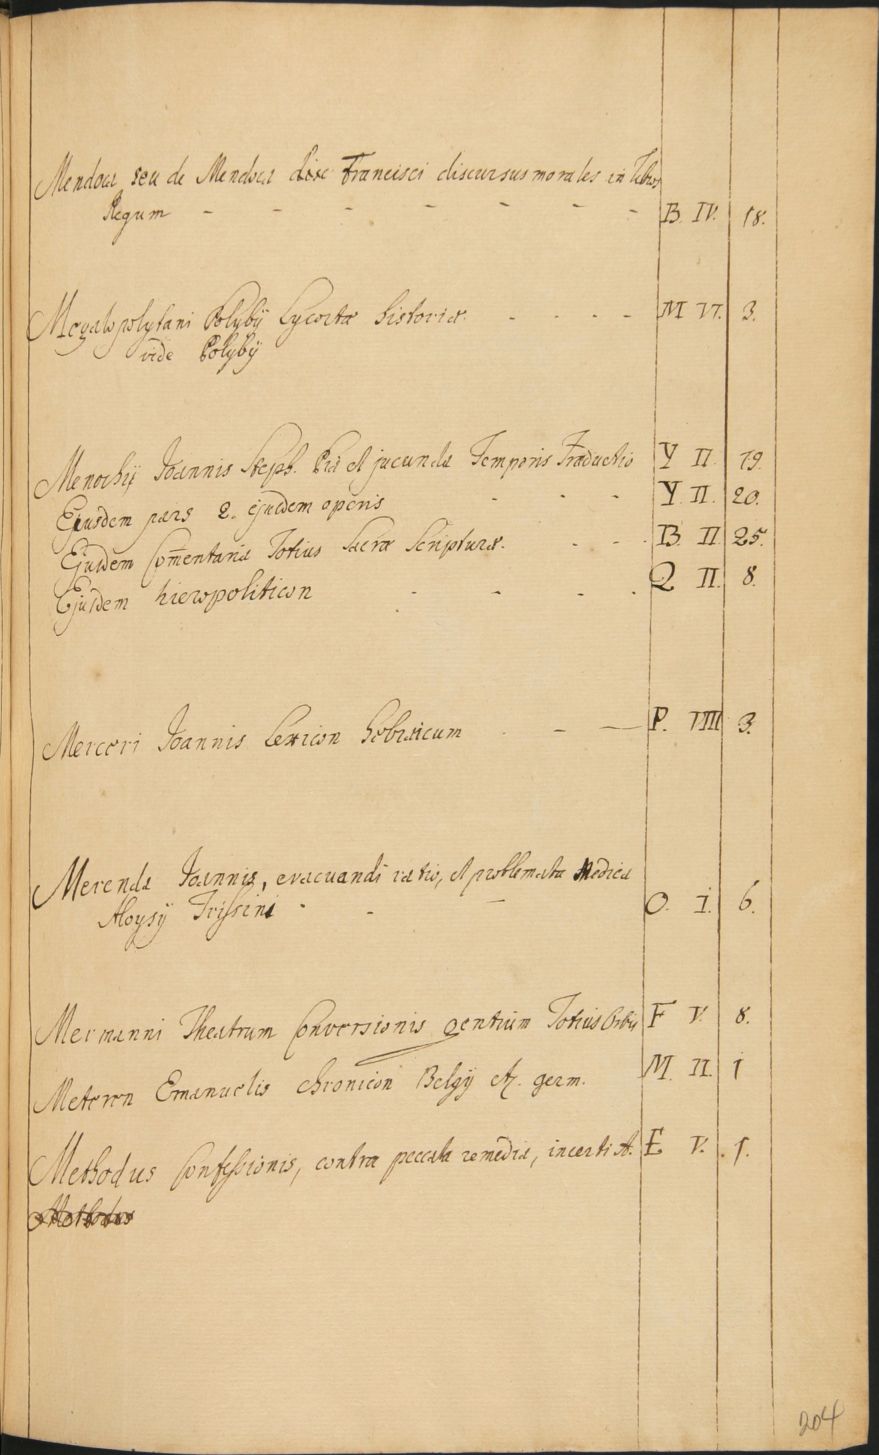 Mendoca seu de Mendoca Francisci discursus morales in libros
Regum - - - - - - - B. IV. 18.
Megalopolytani Polybÿ Lycortæ historiæ. - - - - M VI. 3.
vide Polybÿ
Menochÿ Joannis Steph. Pia et jucunda Temporis Traductio Y II. 19.
Ejusdem pars 2. ejusdem operis - - - Y. II. 20.
Ejusdem Com̄entaria Totius Sacræ Scripturæ. - - - B. II 25.
Ejusdem hieropoliticon - - - - Q II. 8.
Merceri Joannis Lexicon hebraicum - - — P. VIII 3.
Merenda Joannis, evacuandi ratio, et problemata Medica
Aloysÿ Trissini - - - O. I. 6.
Mermanni Theatrum Conversionis gentium Totius Orbis F V. 8.
Meteren Emanuelis chronicon Belgÿ etz. germ. M. II. 1
Methodus Confessionis, contra peccata remedia, incerti A. E V. 1.
Methodus
204